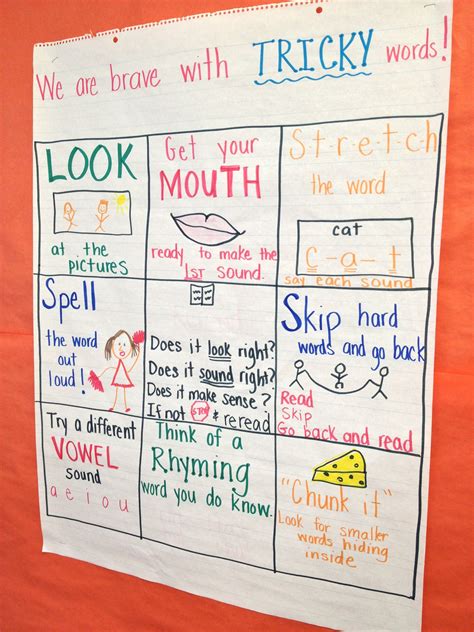 We are brave with TRICKY words!
LOOK
at the
pictures
Get your
MOUTH
ready to make the
1ST sound.
S-t-r-e-t-c-h
the word
cat
c-a-t
say each sound
Spell
the word
out
loud!
Does it look right?
Does it sound right?
Does it make sense?
If not STOP & reread
Skip hard
words and go back
Read
Skip
Go back and read
Try a different
VOWEL
sound
a e i o u
Think of a
Rhyming
word you do know.
"Chunk it"
Look for smaller
words hiding
inside